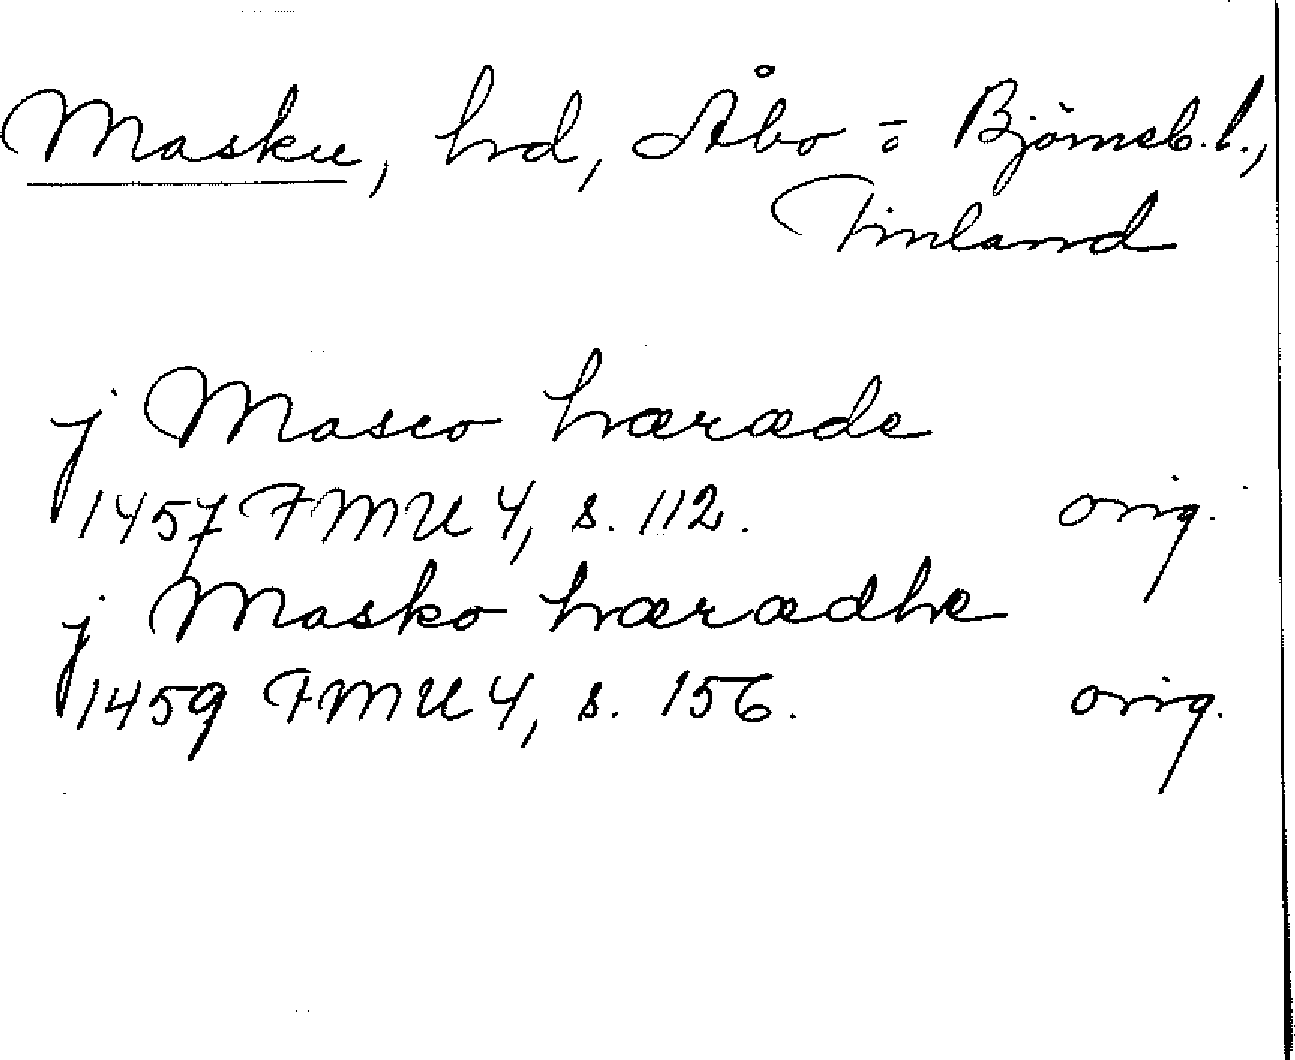 Masku, hrd, Åbo - o Björneb. l.,
Finland
j Masco hæræde
1457 FMU 4, s. 112. orig.
j Masko hærædhe
1459 FMU 4, s. 156. orig.